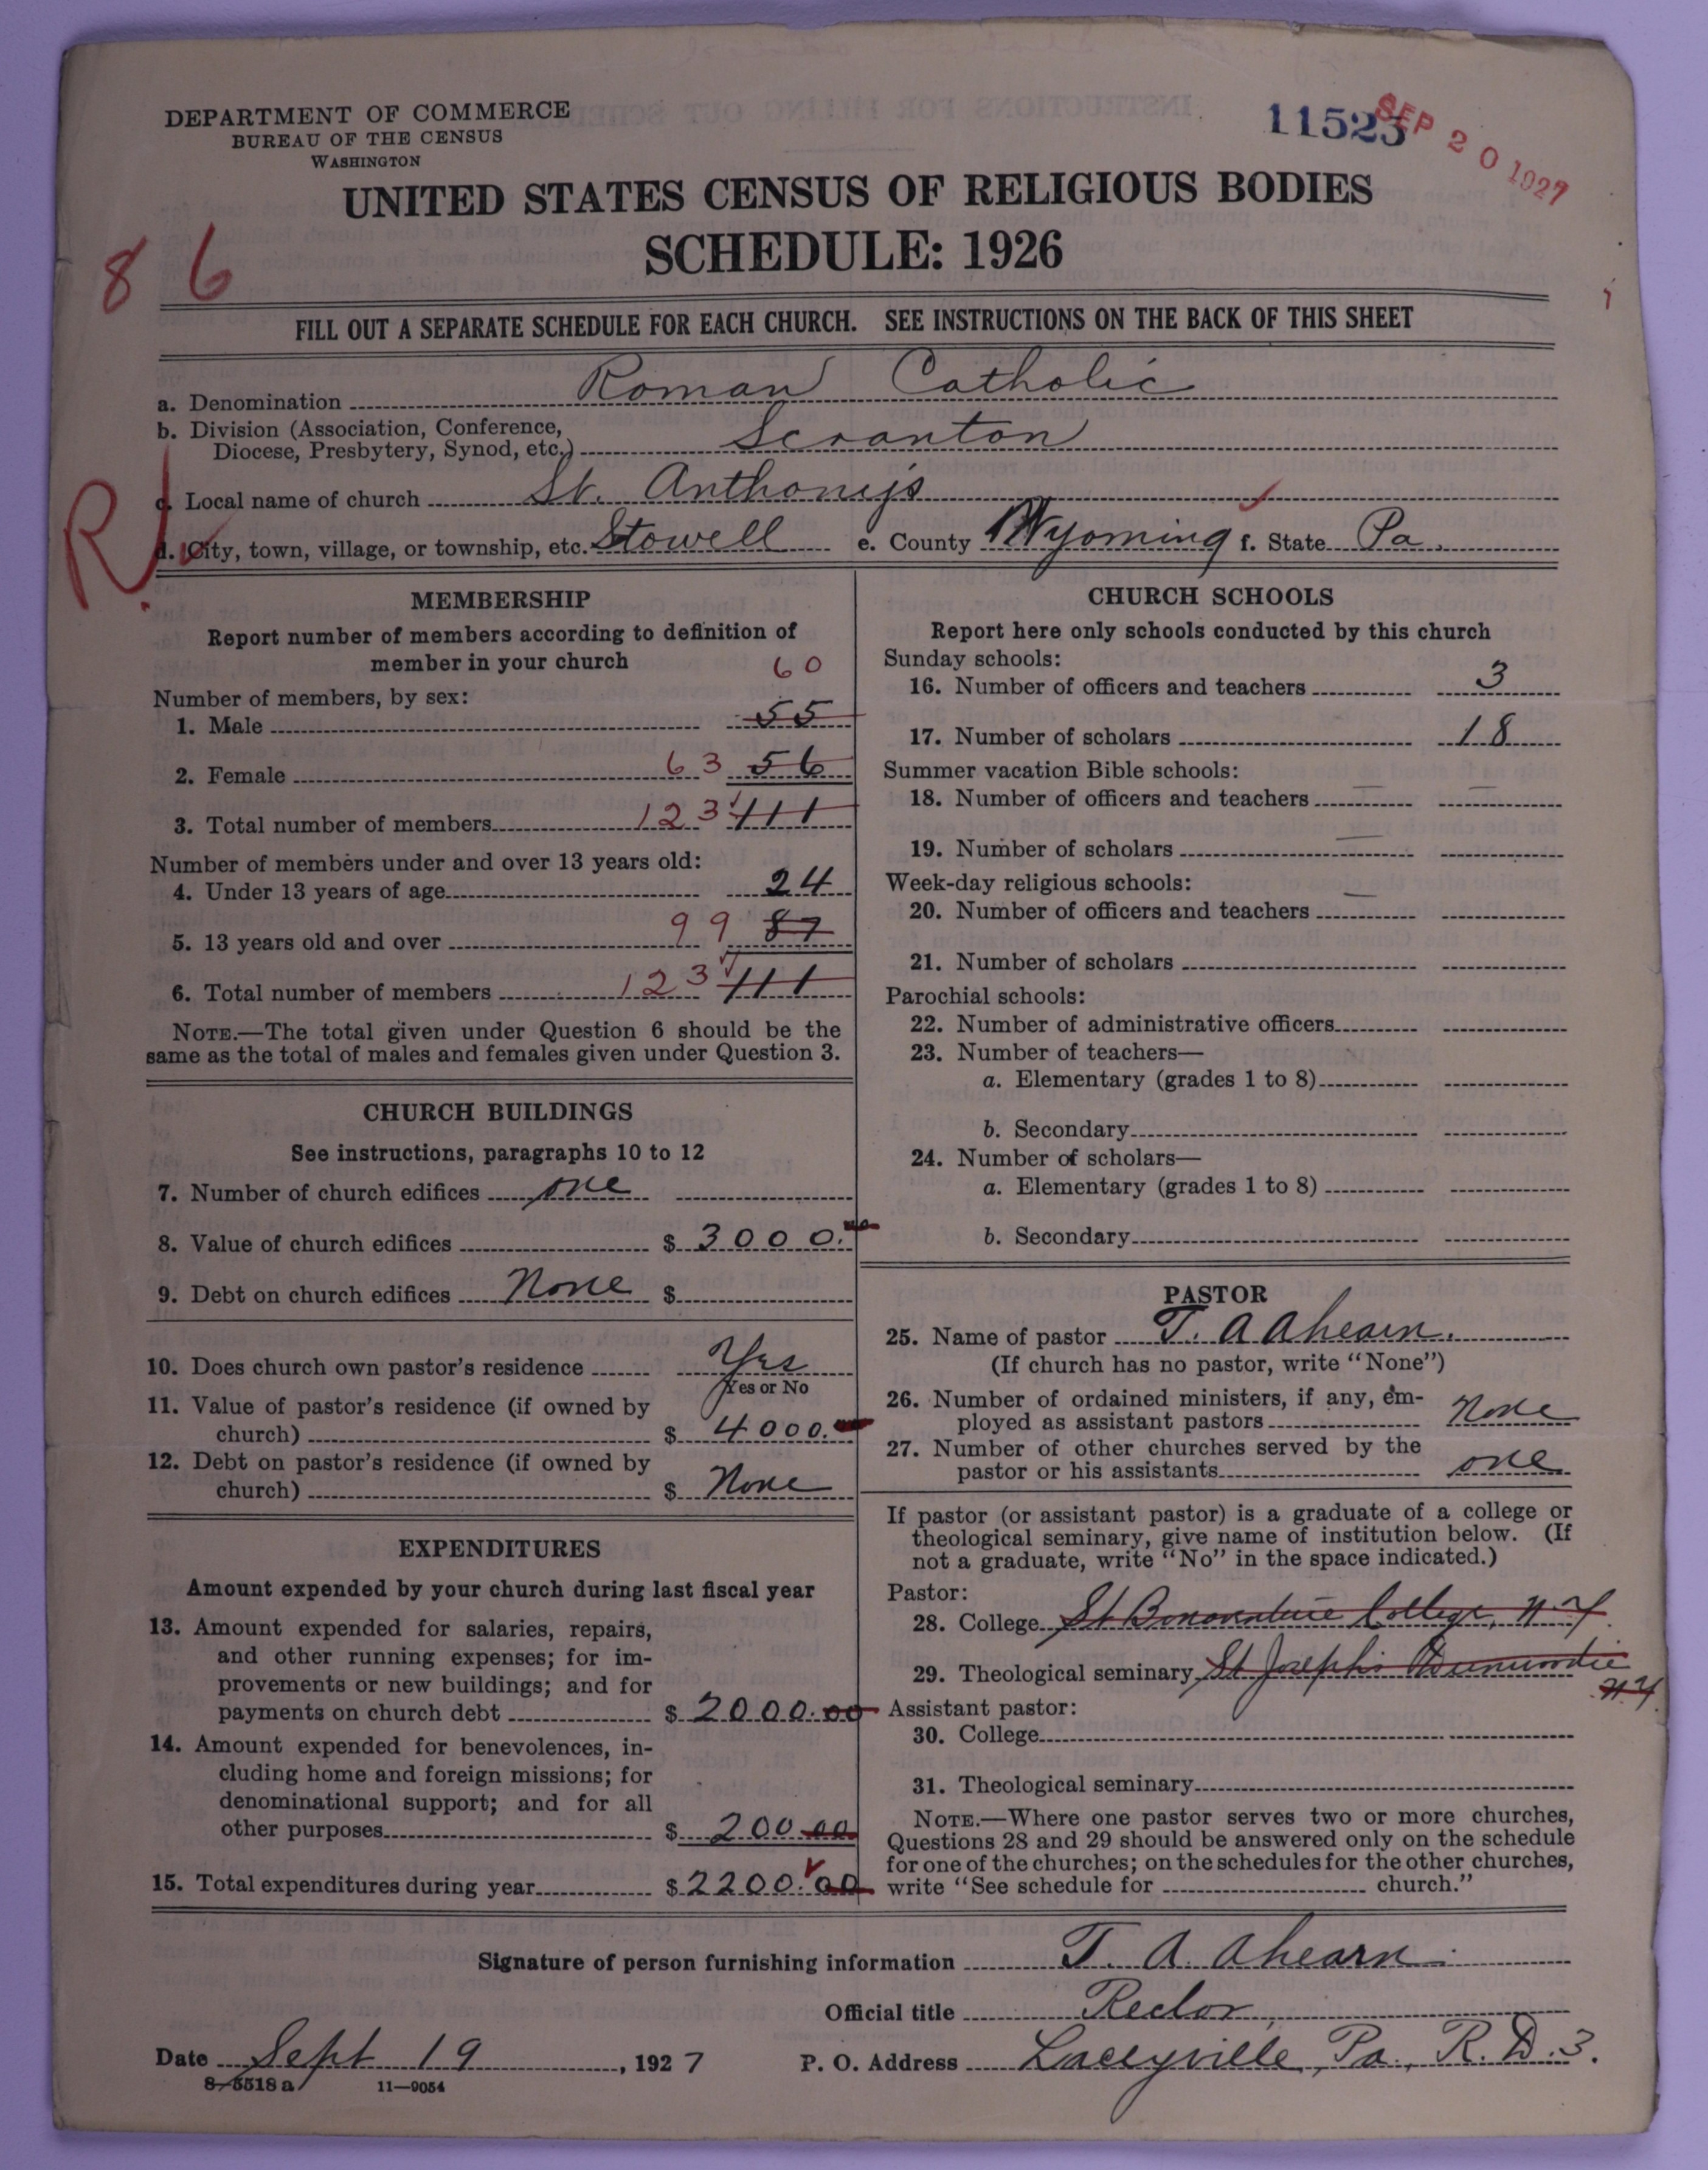 DEPARTMENT OF COMMERCE
BUREAU OF THE CENSUS
WASHINGTON
11523
SEP 20 1927
UNITED STATES CENSUS OF RELIGIOUS BODIES
SCHEDULE: 1926
8 6
FILL OUT A SEPARATE SCHEDULE FOR EACH CHURCH. SEE INSTRUCTIONS ON THE BACK OF THIS SHEET
a. Denomination Roman Catholic
b. Division (Association, Conference,
Diocese, Presbytery, Synod, etc.) Scranton
R
c. Local name of church St. Anthony's
d. City, town, village, or township, etc. Stowell e. County Wyoming f. State Pa.
MEMBERSHIP
Report number of members according to definition of
member in your church
60
Number of members, by sex:
1. Male 55
2. Female 63 56
3. Total number of members 123 111
Number of members under and over 13 years old:
4. Under 13 years of age 24
5. 13 years old and over 99 87
6. Total number of members 123 111
NOTE.—The total given under Question 6 should be the
same as the total of males and females given under Question 3.
CHURCH BUILDINGS
See instructions, paragraphs 10 to 12
7. Number of church edifices one
8. Value of church edifices $ 3000.
9. Debt on church edifices None $
10. Does church own pastor's residence Yes
Yes or No
11. Value of pastor's residence (if owned by
church) $ 4000.
12. Debt on pastor's residence (if owned by
church) $ None
EXPENDITURES
Amount expended by your church during last fiscal year
13. Amount expended for salaries, repairs,
and other running expenses; for im-
provements or new buildings; and for
payments on church debt $ 2000.00
14. Amount expended for benevolences, in-
cluding home and foreign missions; for
denominational support; and for all
other purposes $ 200.00
15. Total expenditures during year $ 2200.00
CHURCH SCHOOLS
Report here only schools conducted by this church
Sunday schools:
16. Number of officers and teachers 3
17. Number of scholars 18
Summer vacation Bible schools:
18. Number of officers and teachers —
19. Number of scholars —
Week-day religious schools:
20. Number of officers and teachers —
21. Number of scholars
Parochial schools:
22. Number of administrative officers
23. Number of teachers—
a. Elementary (grades 1 to 8)
b. Secondary
24. Number of scholars—
a. Elementary (grades 1 to 8)
b. Secondary
PASTOR
25. Name of pastor T. A Ahearn.
(If church has no pastor, write "None")
26. Number of ordained ministers, if any, em-
ployed as assistant pastors None
27. Number of other churches served by the
pastor or his assistants one
If pastor (or assistant pastor) is a graduate of a college or
theological seminary, give name of institution below. (If
not a graduate, write "No" in the space indicated.)
Pastor:
28. College St Bonaventure College, N.Y.
29. Theological seminary St Joseph's Dunwoodie
N.Y.
Assistant pastor:
30. College
31. Theological seminary
NOTE.—Where one pastor serves two or more churches,
Questions 28 and 29 should be answered only on the schedule
for one of the churches; on the schedules for the other churches,
write "See schedule for church."
Signature of person furnishing information T. A. Ahearn.
Official title Rector
Date Sept 19, 1927 P. O. Address Laceyville, Pa., R.D. 3.
8-5518 a 11—9054